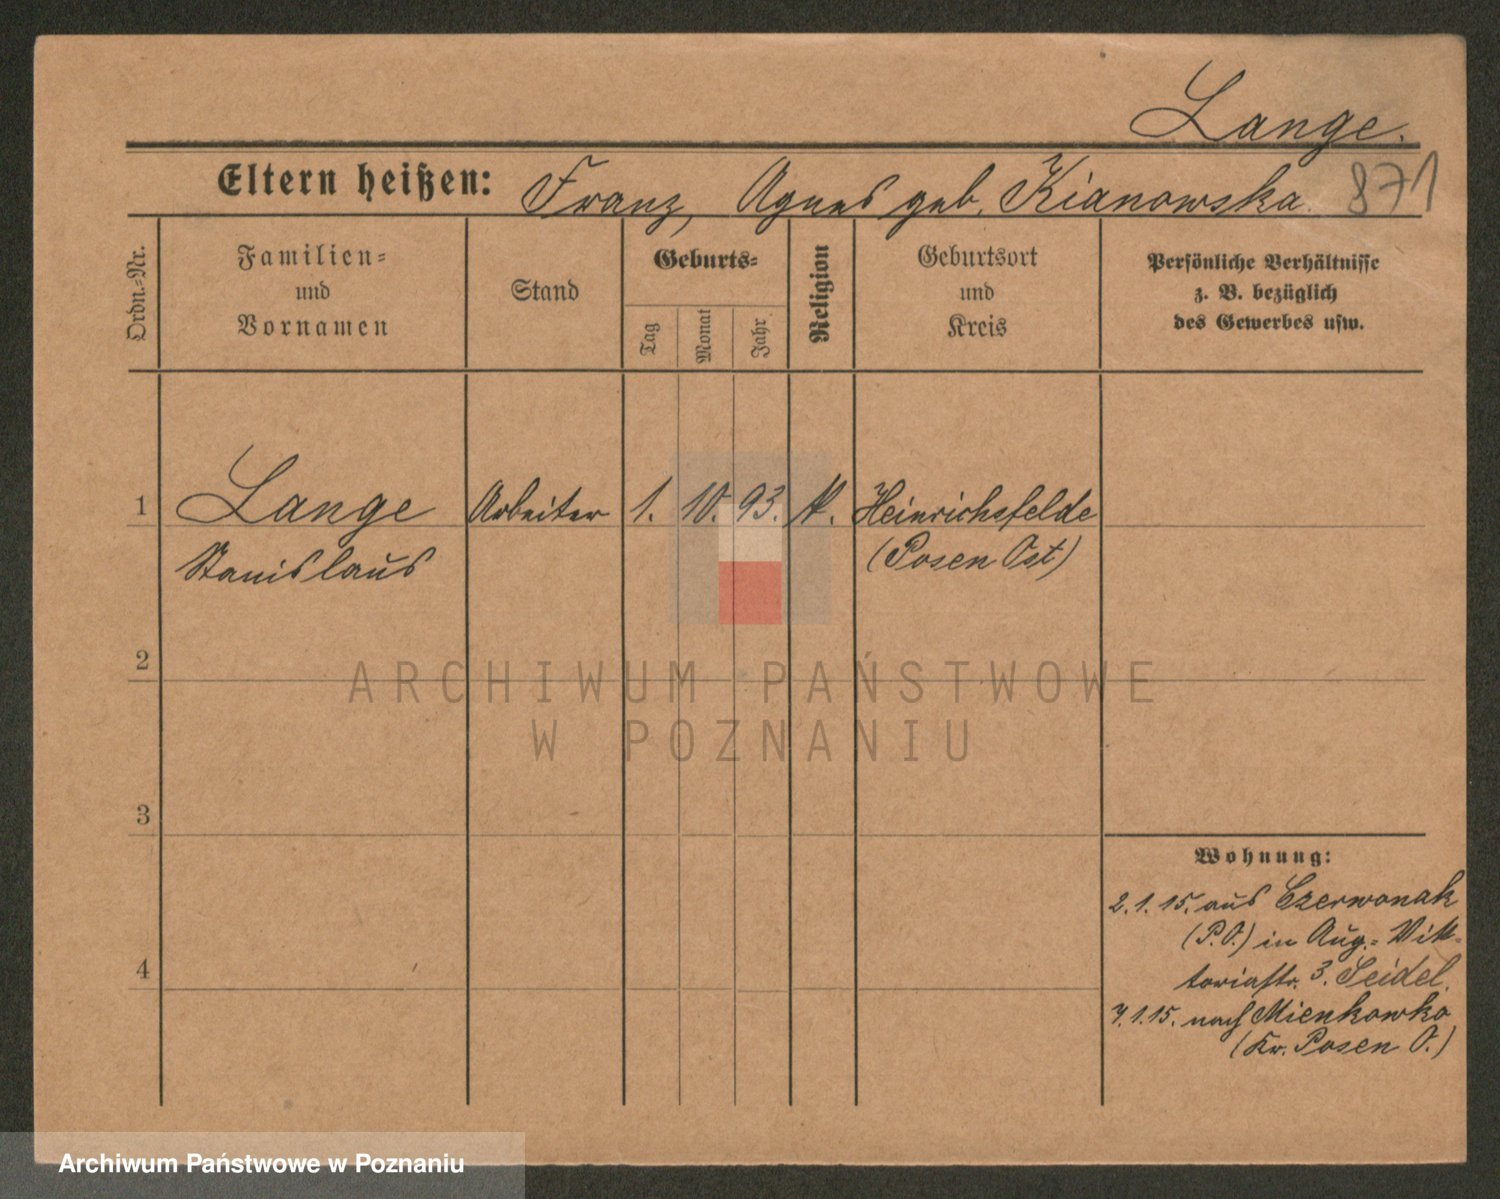 Lange.
Eltern heißen: Franz, Agnes geb. Kianowska. 871
Ordn.-Nr.
Familien-
und
Vornamen
Stand
Geburts-
Tag
Monat
Jahr
Religion
Geburtsort
und
Kreis
Persönliche Verhältnisse
z. B. bezüglich
des Gewerbes usw.
1 Lange Arbeiter 1. 10. 93. k. Heinrichsfelde
Stanislaus (Posen Ost)
2
3
4
Wohnung:
2.1.15. aus Czerwonak
(P.O.) in Aug.-Vik-
toriastr. 3. Seidel.
7.1.15. nach Mienkowko
(Kr. Posen O.)
ARCHIWUM PAŃSTWOWE
W POZNANIU
Archiwum Państwowe w Poznaniu